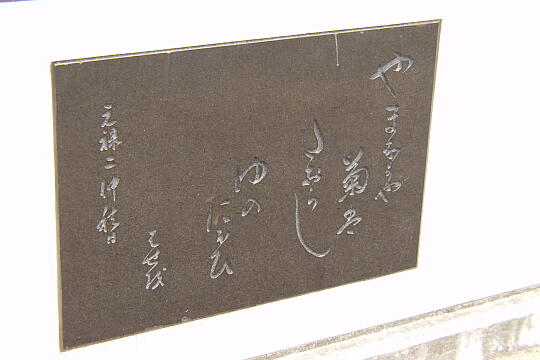 やまなかや
菊は
たおらし
ゆの
にほひ
はせを
元禄二仲秋日